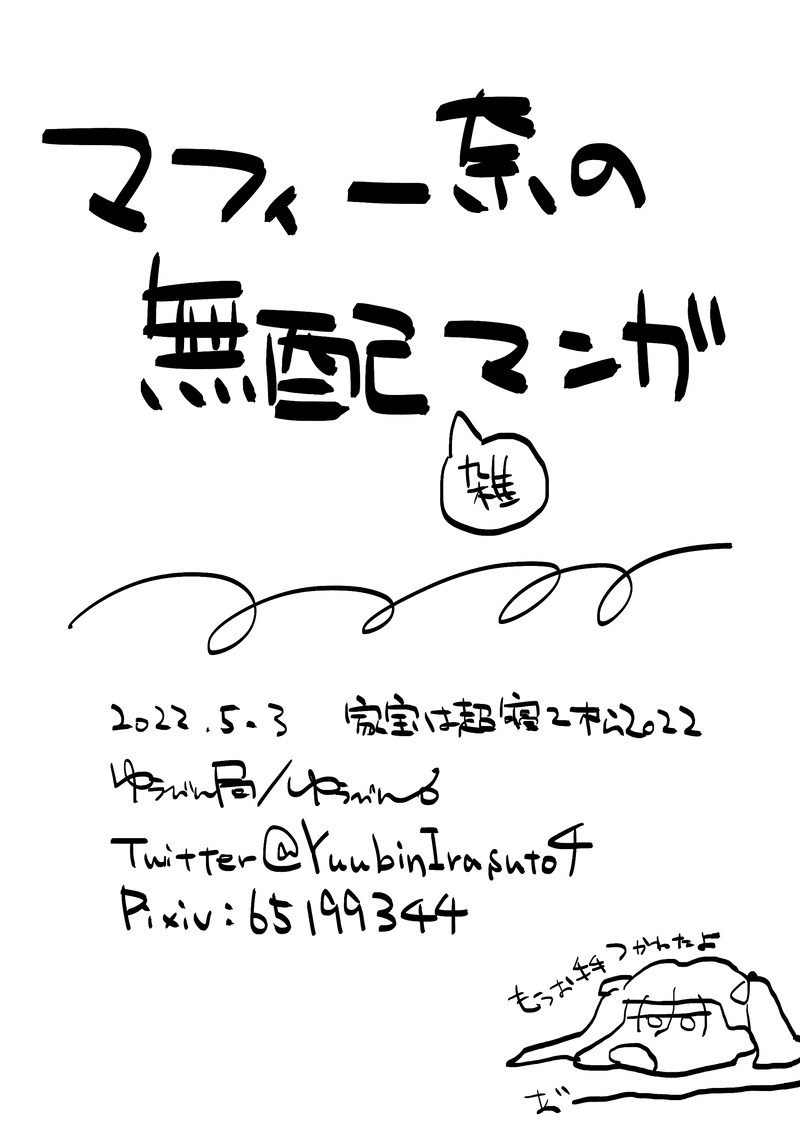 マフィー奈の
無配マンガ
雑
2022.5.3 家宝は超寝て松2022
ゆうびん局/ゆうびん
Twitter@YuubinIrasuto4
Pixiv:65199344
もうお
つかれたよ